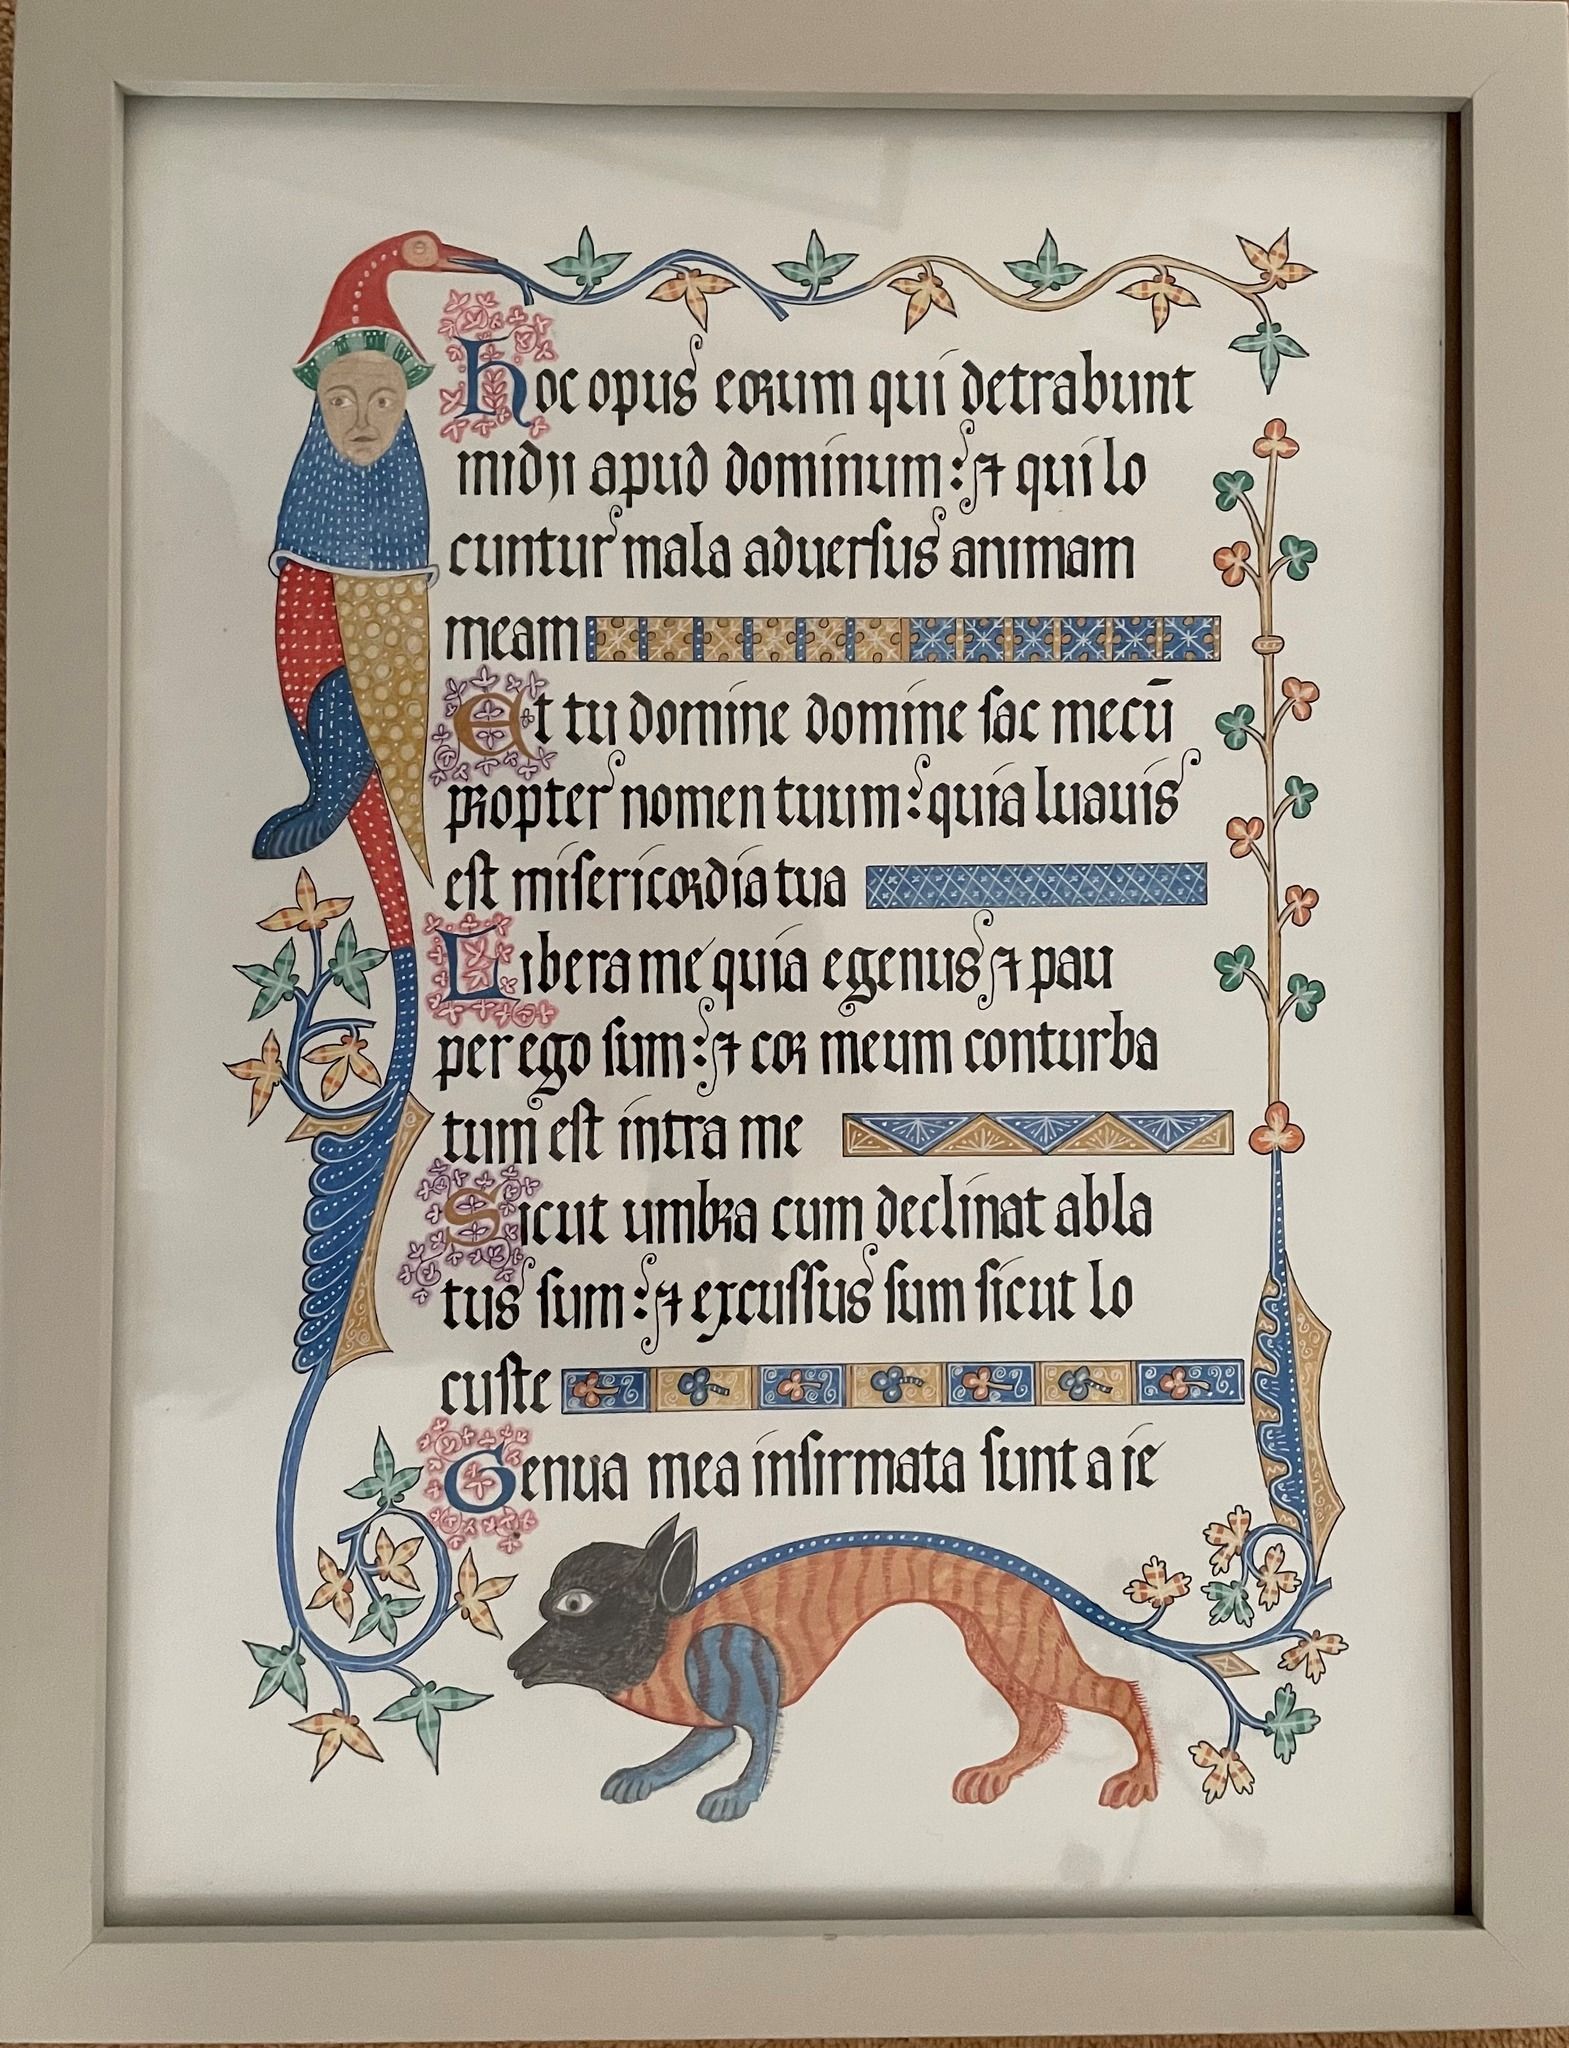 hoc opus eorum qui detrabunt
midji apud dominum : ⁊ qui lo
cuntur mala aduersus animam
meam
Et tu domine domine fac mecū
propter nomen tuum : quia luauis
est misericordia tua
Libera me quia egenus ⁊ pau
per ego sum : ⁊ cor meum conturba
tum est intra me
Sicut umbra cum declinat abla
tus sum : ⁊ excussus sum sicut lo
custe
Genua mea infirmata sunt a ie